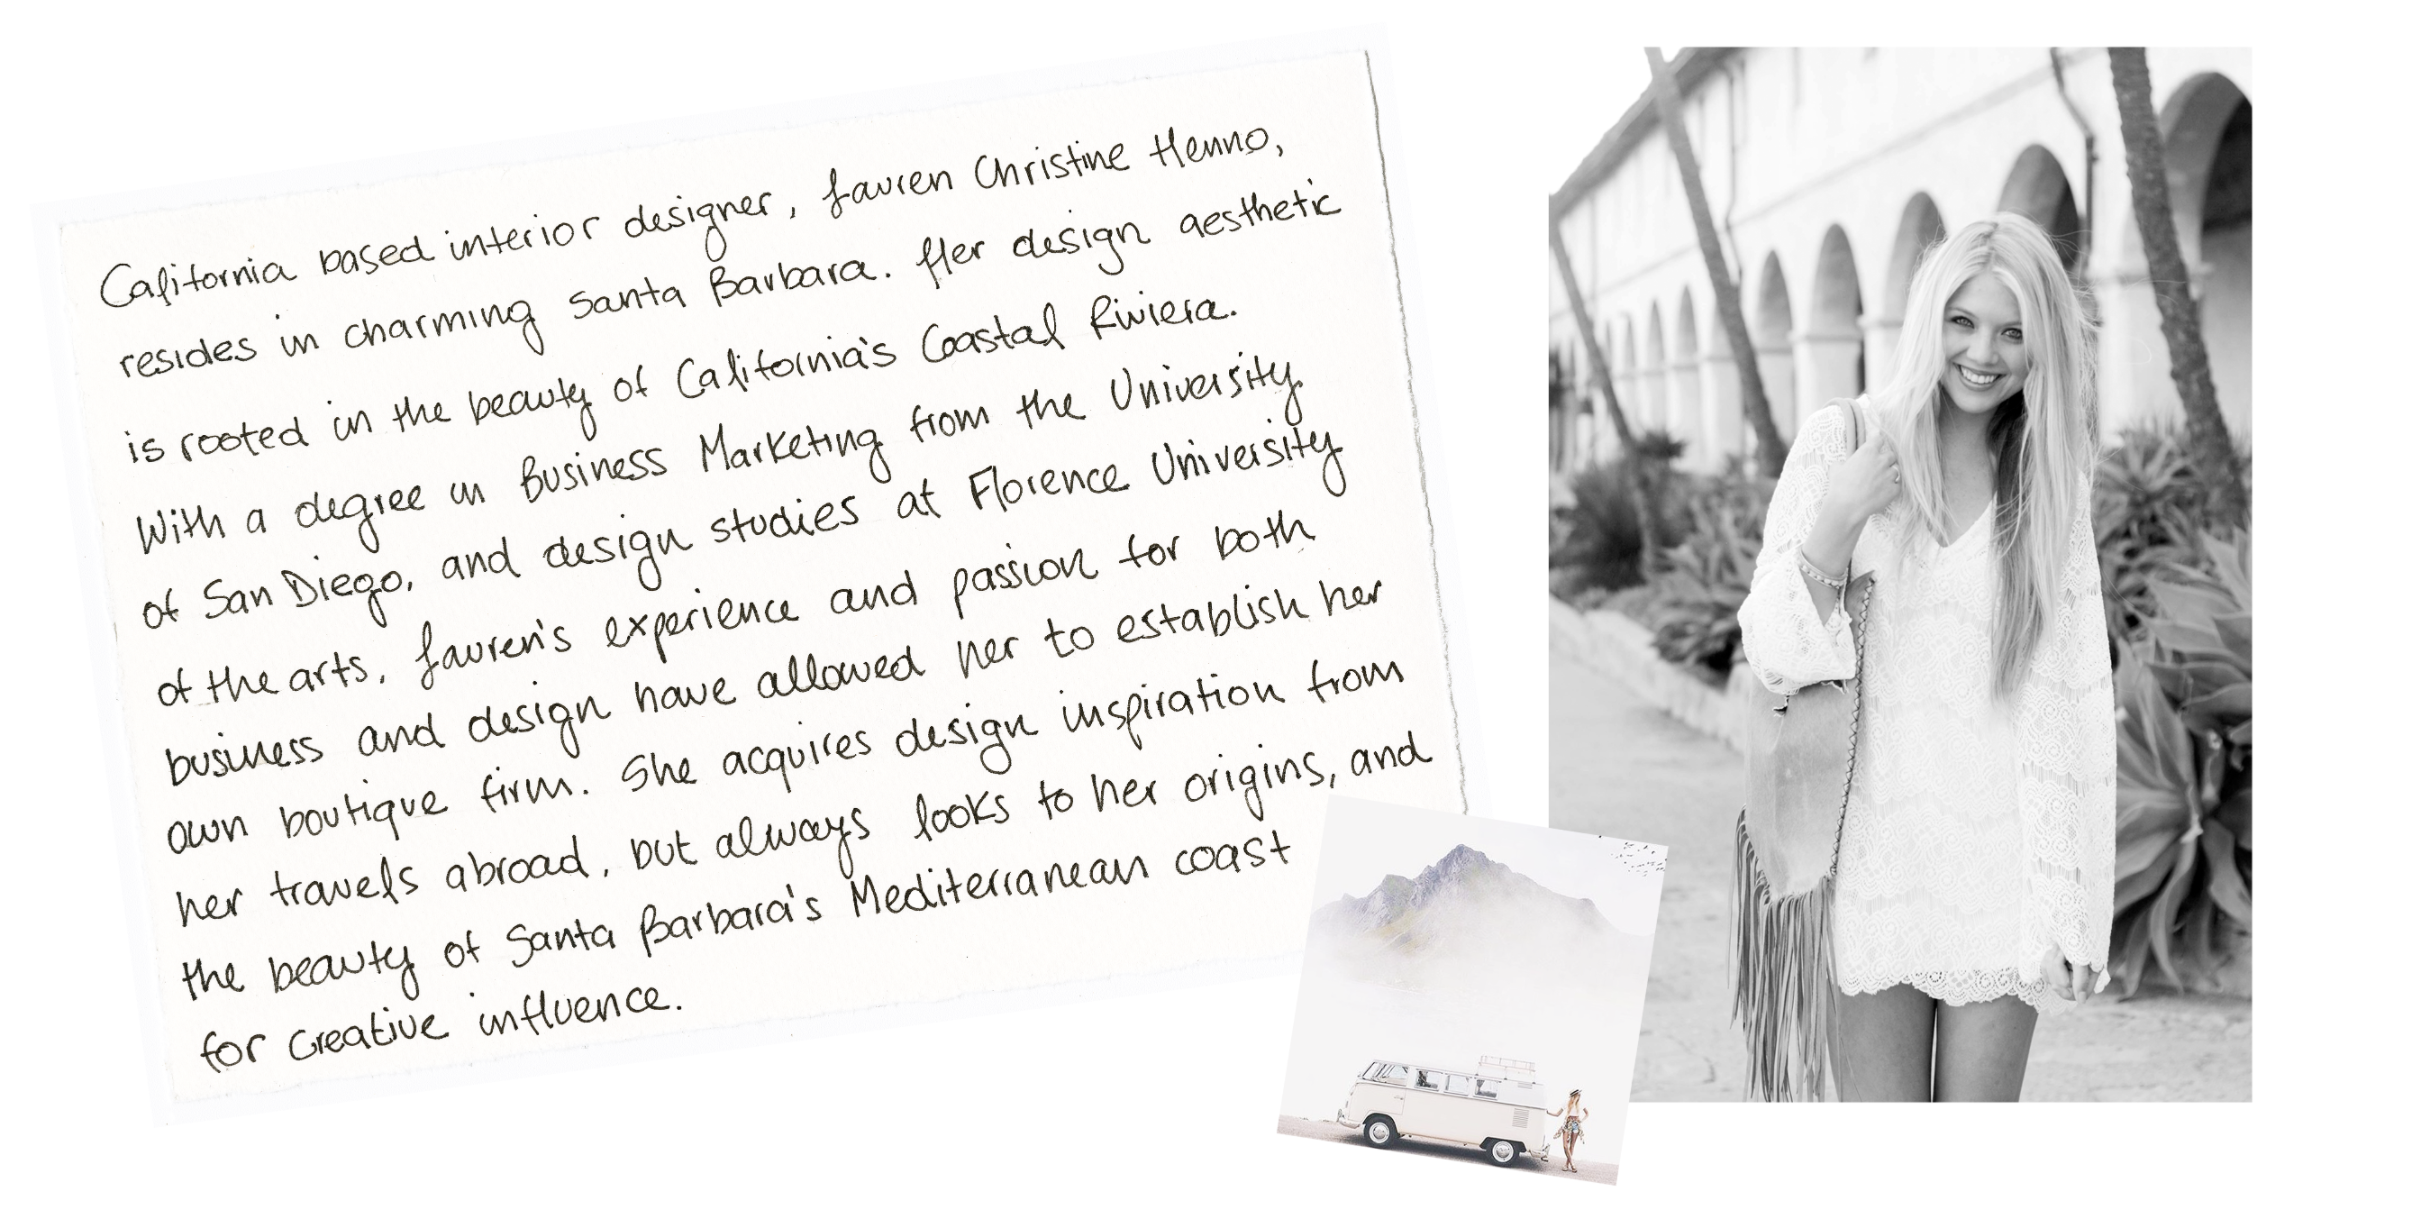 California based interior designer, Lauren Christine Henno,
resides in charming Santa Barbara. Her design aesthetic
is rooted in the beauty of California's Coastal Riviera.
With a degree in Business Marketing from the University
of San Diego, and design studies at Florence University
of the arts, Lauren's experience and passion for both
business and design have allowed her to establish her
own boutique firm. She acquires design inspiration from
her travels abroad, but always looks to her origins, and
the beauty of Santa Barbara's Mediterranean coast
for creative influence.